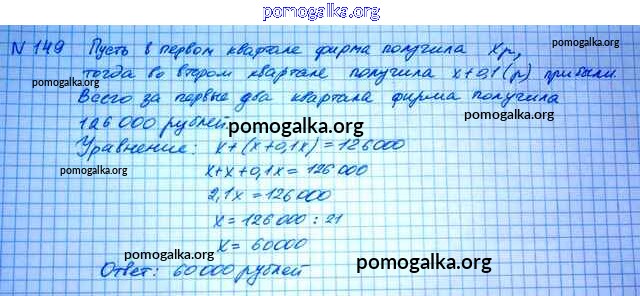 pomogalka.org
N 149 Пусть в первом квартале фирма получила x р, pomogalka.org
тогда во втором квартале получила x+0,1 (р) прибыли.
Всего за первые два квартала фирма получила
126 000 рублей. pomogalka.org pomogalka.org
Уравнение: x+(x+0,1x)=126000
pomogalka.org x+x+0,1x=126000 pomogalka.org
2,1x=126000
x=126000:21
pomogalka.org x=60000 pomogalka.org
Ответ: 60000 рублей pomogalka.org